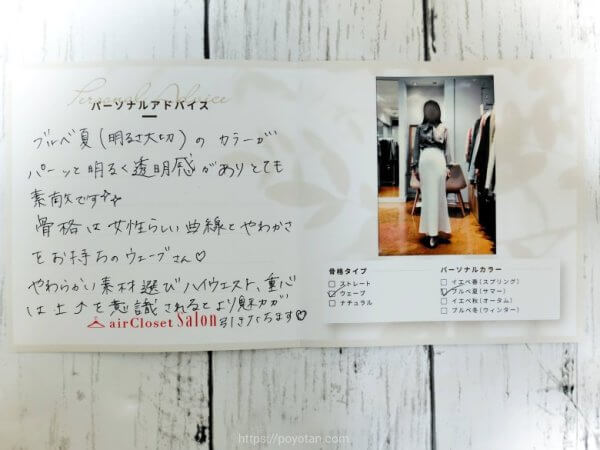 Personal Advice
パーソナルアドバイス
ブルベ夏(明るさ大切)の カラーが
パーッと明るく透明感がありとても
素敵です☆☆
骨格は女性らしい曲線とやわかさ
をお持ちのウェーブさん♡
やわらかい素材選びハイウェスト、重心
は上↑を意識されるとより魅力が
引きたちます♡
airCloset Salon
骨格タイプ
ストレート
ウェーブ
ナチュラル
パーソナルカラー
イエベ春(スプリング)
ブルベ夏(サマー)
イエベ秋(オータム)
ブルベ冬(ウィンター)
https://poyotan.com